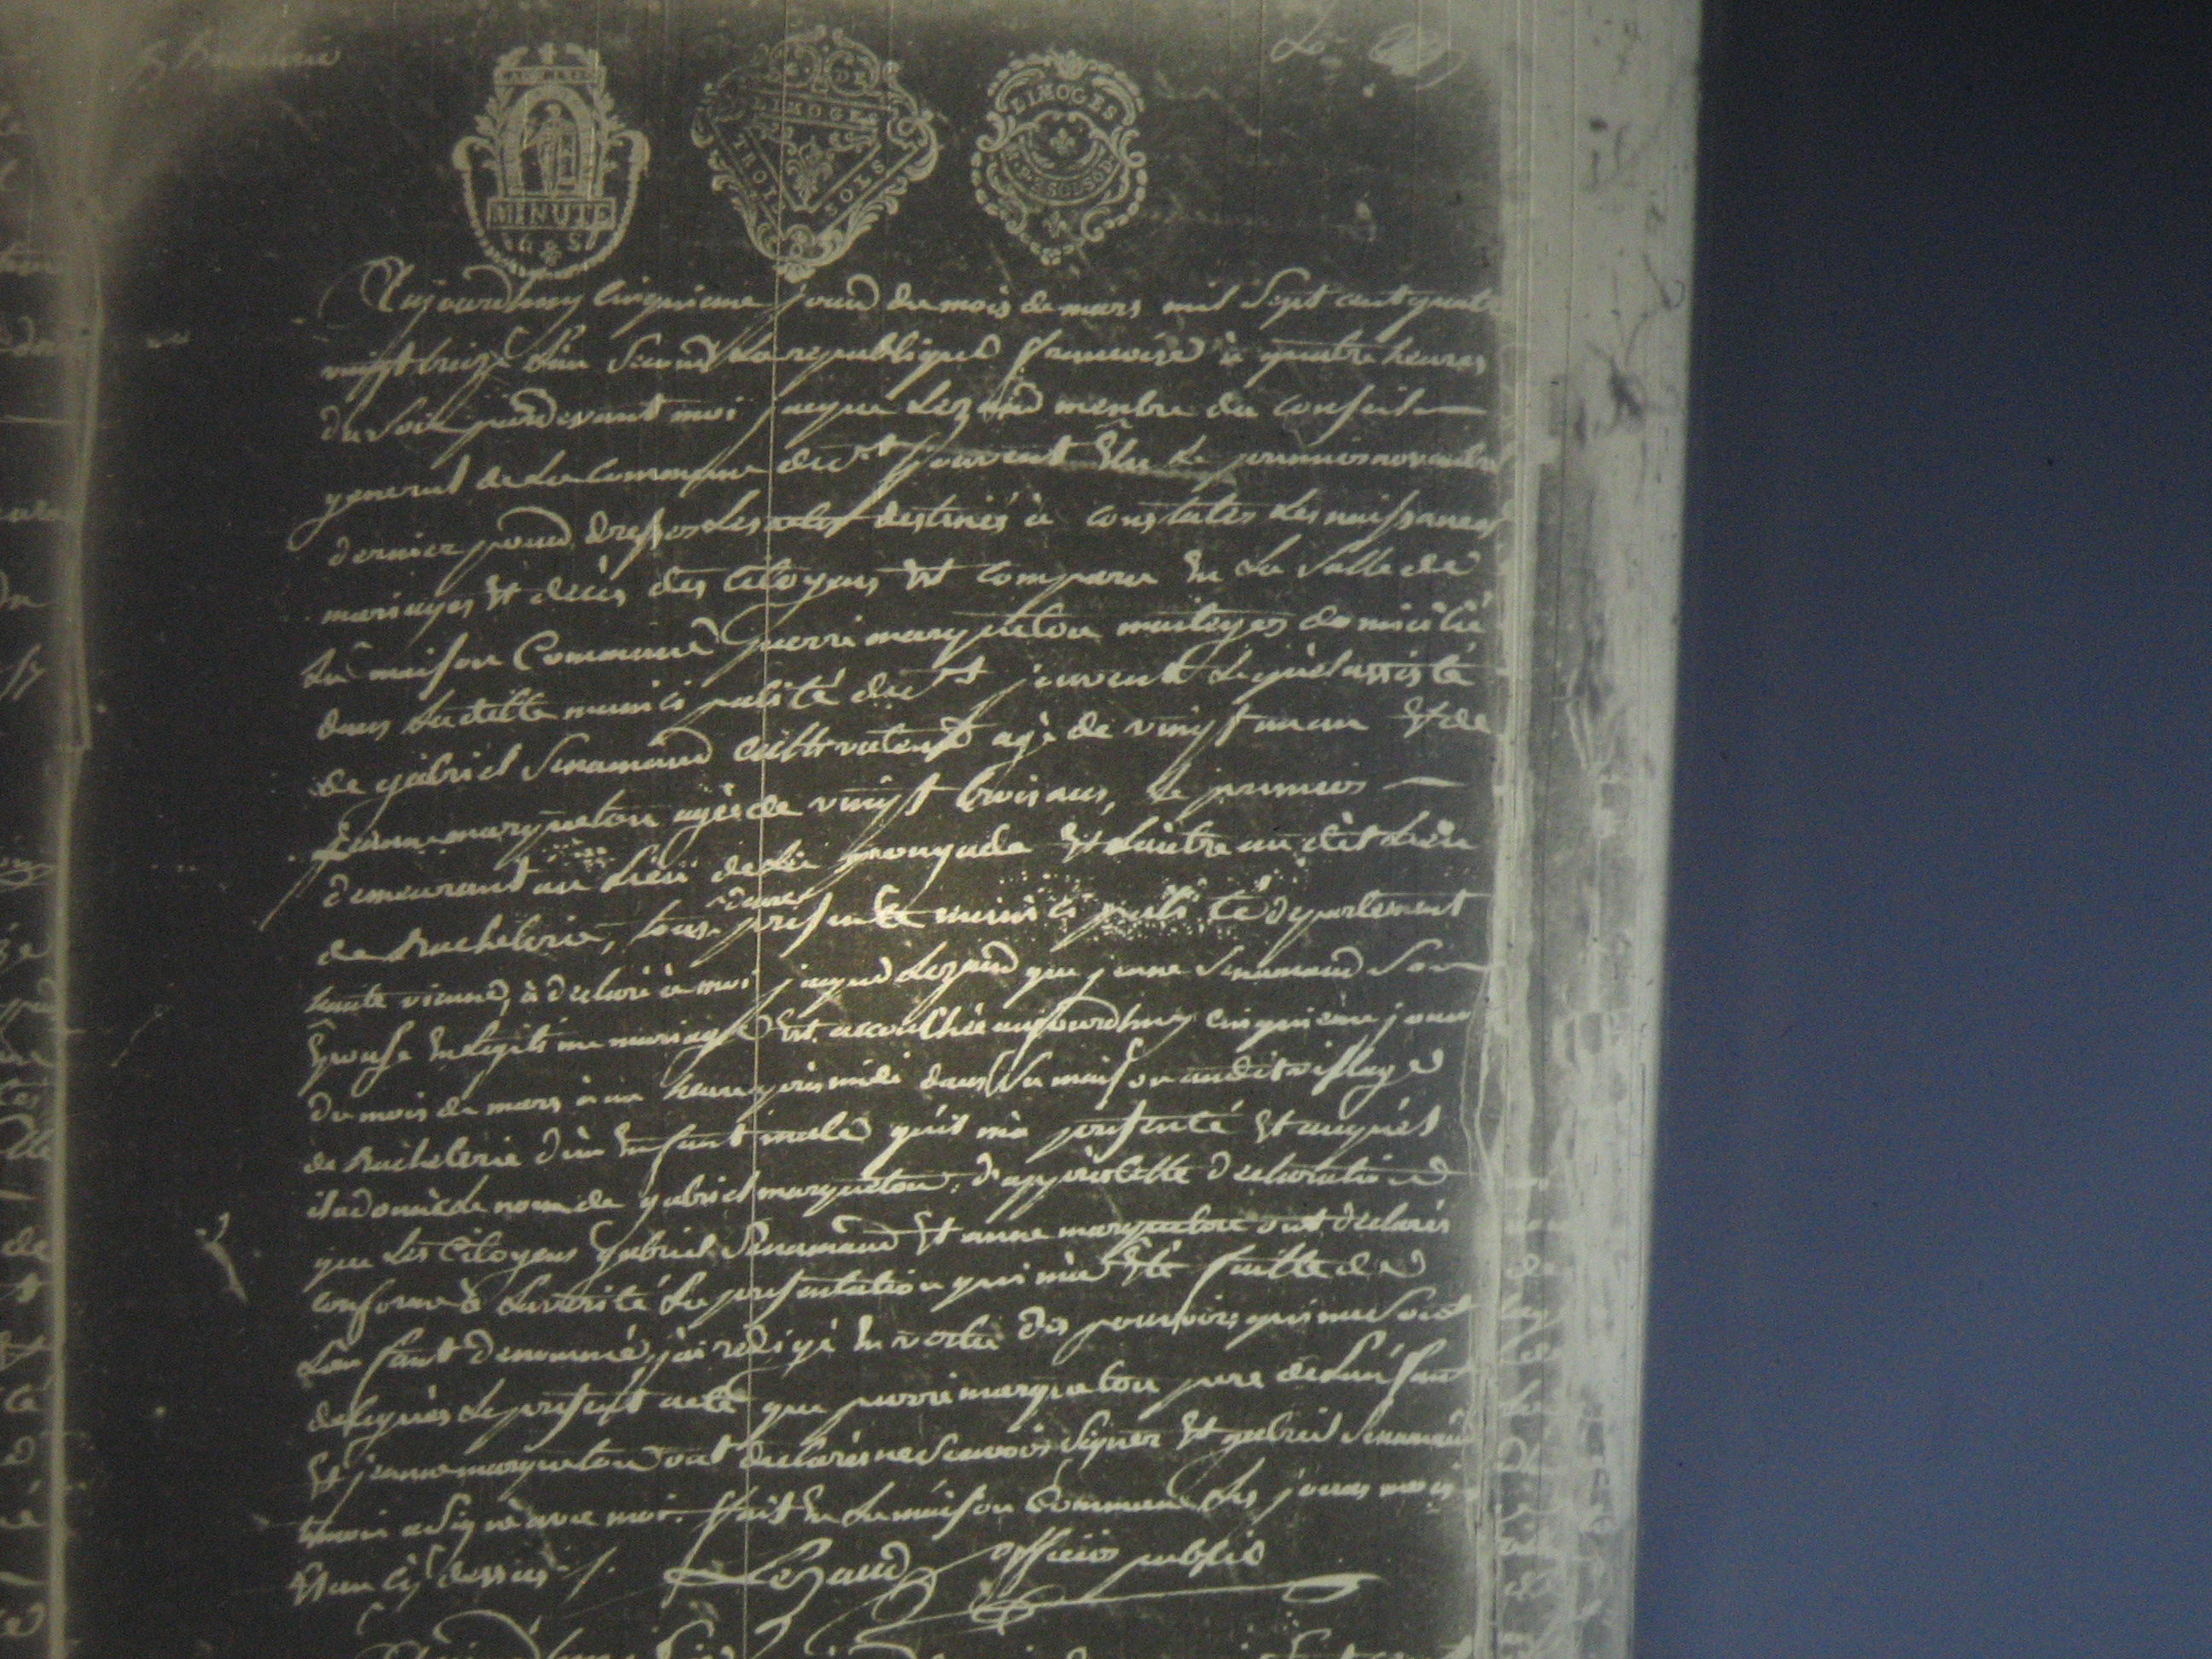 MINUTE
6 S
G. DE
LIMOGES
TROIS SOLS
LIMOGES
Aujourdhuy cinquieme jour du mois de mars mil sept cent quatre
vingt treize L'an Second La republique francoise à quatre heures
du Soir pardevant moi jacque Lezaud membre du conseil
general de La Commune de st jouvent Elu Le premier novembre
dernier pour dresser Les actes destinés à constater Les naissances
mariages Et décès des citoyens Est comparu En La Salle de
La maison Commune pierre marqueton metoyer domicilié
dans Laditte municipalité de st jouvent Lequel assisté
de gabriel Senamaud cultivateur agé de vingt un an Et de
marqueton agée de vingt trois ans, Le premier
demeurant au Lieu de La Et Lautre au dit Lieu
de Bachelerie, tous dans presente municipalité departement
haute vienne, à declaré à moi jacque Lezaud que jeanne Senamaud Son
Epouse En Legitime mariage Est accouchée aujourdhuy cinquieme jour
du mois de mars à un heure près midi dans Sa maison audit village
de Bachelerie d'un Enfant male quil m'a presenté Et auquel
il a donné Le nom de gabriel marqueton, d'apprès cette declaration
que Les Citoyens gabriel Senamaud Et anne marqueton ont declarés
conforme à La verité La presentation qui m'a Eté faitte de
Lenfant denommé, j'ai redigé En vertu des pouvoirs qui me Sont
delegués Le present acte que pierre marqueton pere de Lenfant
Et jeanne marqueton ont declarés ne Scavoir Signer Et gabriel Senamaud
temoin a Signé avec moi. fait En La maison Commune Les jours mois
Et an cy dessus ./. Lezaud officier public